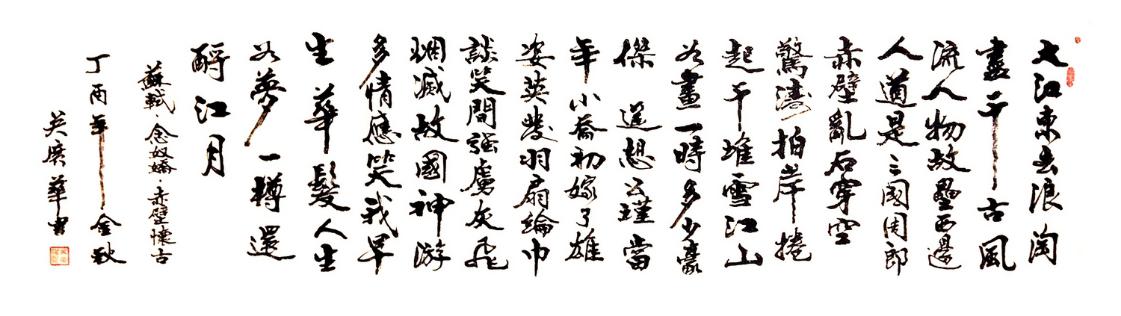 大江東去浪淘
盡千古風
流人物故壘西邊
人道是三國周郎
赤壁亂石穿空
驚濤拍岸捲
起千堆雪江山
如畫一時多少豪
傑 遥想公瑾當
年小喬初嫁了雄
姿英發羽扇綸巾
談笑間強虜灰飛
烟滅故國神游
多情應笑我早
生華髮人生
如夢一樽還
酹江月
蘇軾·念奴嬌·赤壁懷古
丁酉年金秋
華書